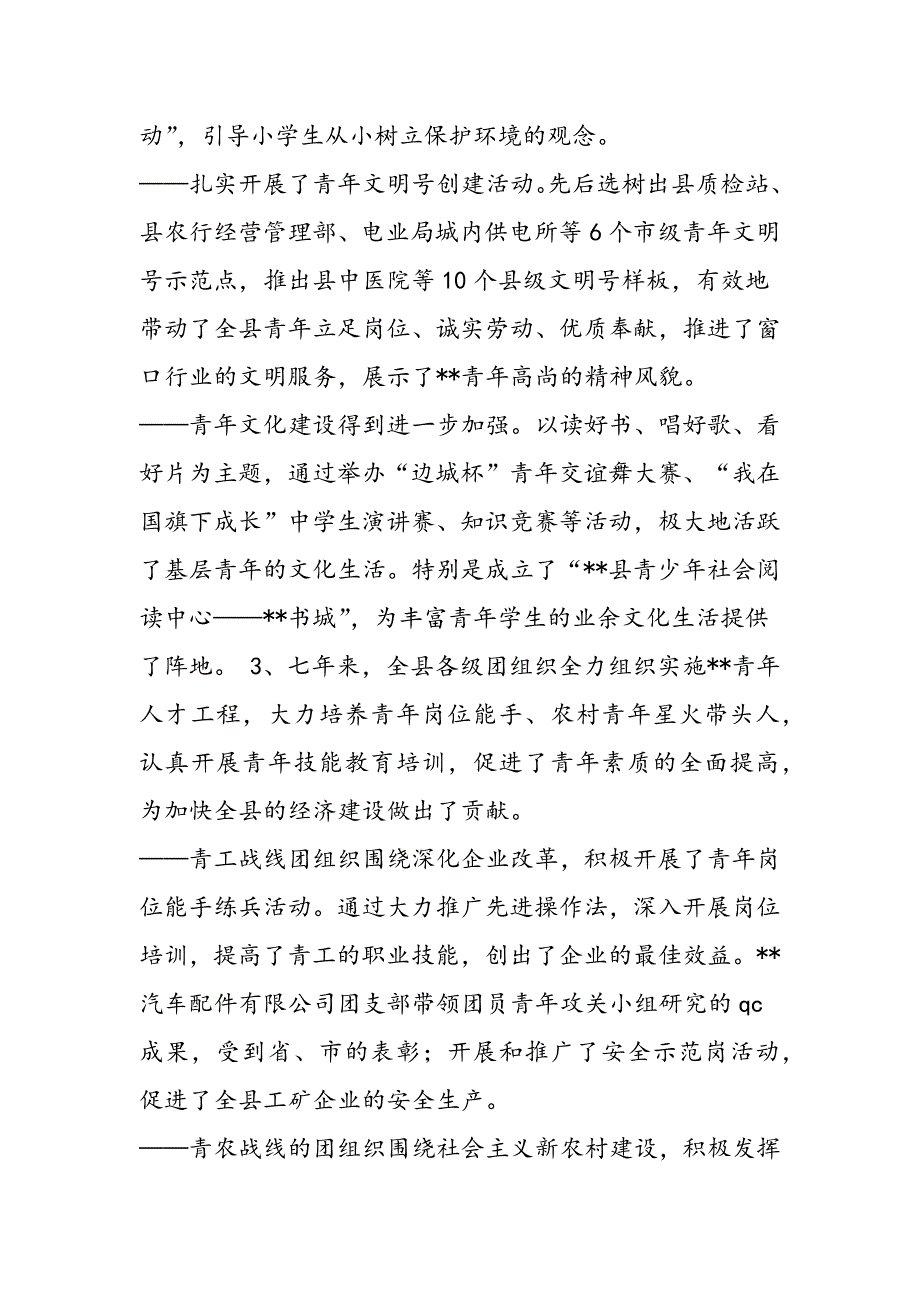 动”，引导小学生从小树立保护环境的观念。
——扎实开展了青年文明号创建活动。先后选树出县质检站、
县农行经营管理部、电业局城内供电所等 6 个市级青年文明
号示范点，推出县中医院等 10 个县级文明号样板，有效地
带动了全县青年立足岗位、诚实劳动、优质奉献，推进了窗
口行业的文明服务，展示了**青年高尚的精神风貌。
——青年文化建设得到进一步加强。以读好书、唱好歌、看
好片为主题，通过举办“边城杯”青年交谊舞大赛、“我在
国旗下成长”中学生演讲赛、知识竞赛等活动，极大地活跃
了基层青年的文化生活。特别是成立了“**县青少年社会阅
读中心——**书城”，为丰富青年学生的业余文化生活提供
了阵地。 3、七年来，全县各级团组织全力组织实施**青年
人才工程，大力培养青年岗位能手、农村青年星火带头人，
认真开展青年技能教育培训，促进了青年素质的全面提高，
为加快全县的经济建设做出了贡献。
——青工战线团组织围绕深化企业改革，积极开展了青年岗
位能手练兵活动。通过大力推广先进操作法，深入开展岗位
培训，提高了青工的职业技能，创出了企业的最佳效益。**
汽车配件有限公司团支部带领团员青年攻关小组研究的 qc
成果，受到省、市的表彰；开展和推广了安全示范岗活动，
促进了全县工矿企业的安全生产。
——青农战线的团组织围绕社会主义新农村建设，积极发挥